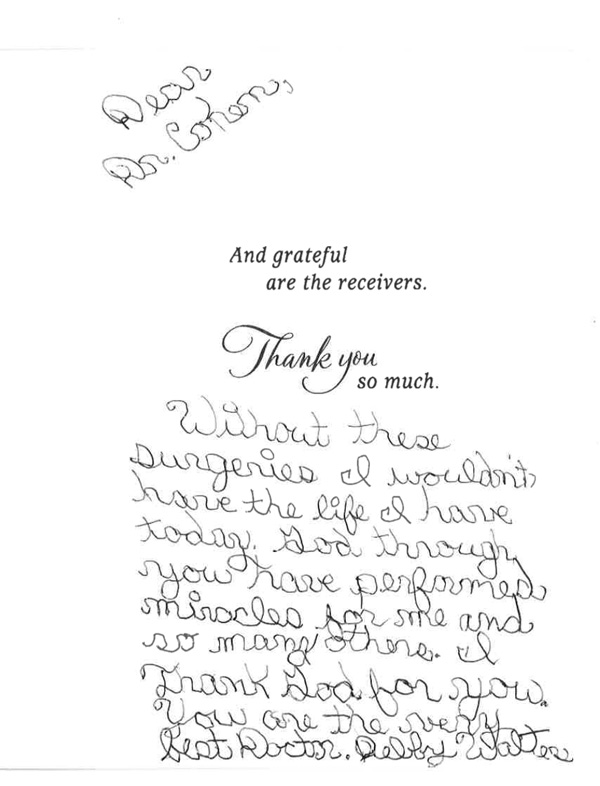 Dear
Dr. Cohen,
And grateful
are the receivers.
Thank you
so much.
Without these
surgeries I wouldn't
have the life I have
today. God through
you have performed
miracles for me and
so many others. I
Thank God for you.
You are the very
best Doctor. Debby Walters